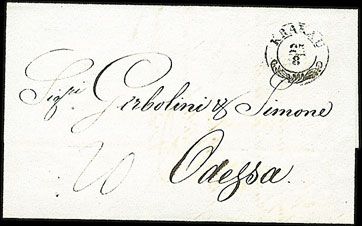 KRAKAU
Sigri Gerbolini & Simone
20
Odessa.